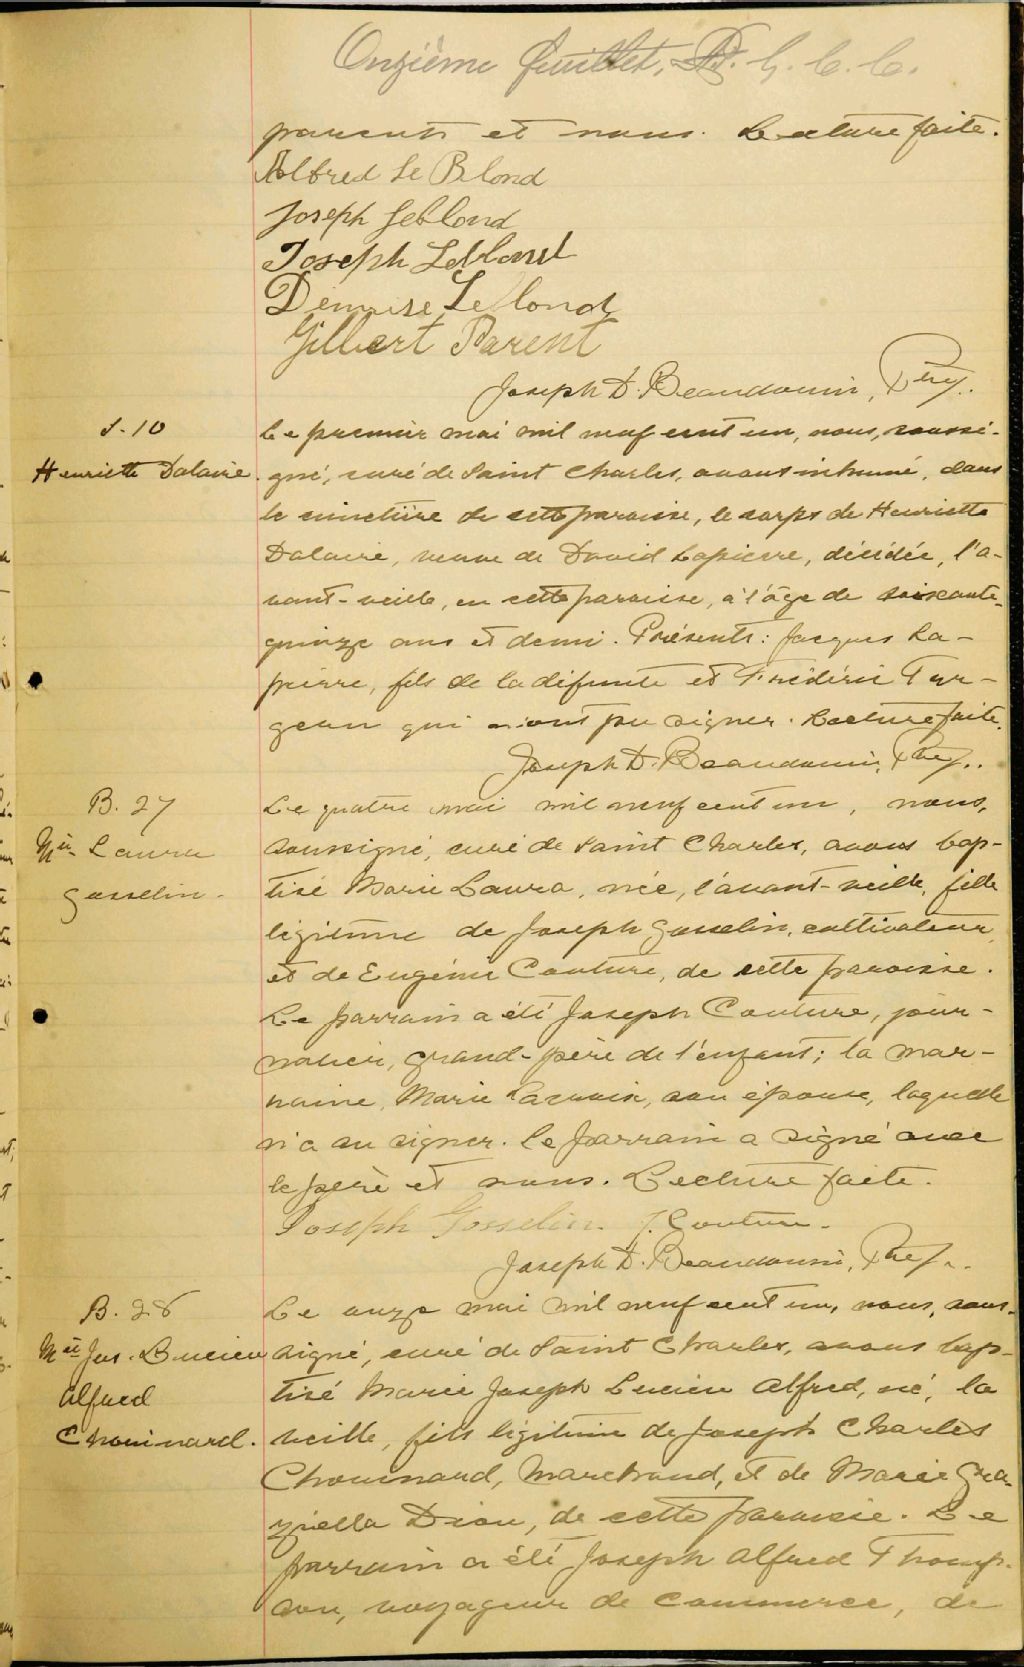 Onzième feuillet. D. G. C. C.
parents et nous. Lecture faite.
Alfred Le Blond
Joseph Leblond
Joseph Leblond
Démerise Leblond
Gilbert Parent
Joseph D. Beaudouin, Ptre.
S. 10
Henriette Dalaire.
Le premier mai mil neuf cent un, nous, soussi-
gné, curé de Saint Charles, avons inhumé, dans
le cimetière de cette paroisse, le corps de Henriette
Dalaire, veuve de David Lapierre, décédée, l'a-
vant-veille, en cette paroisse, à l'âge de soixante-
quinze ans et demi. Présents: Jacques La-
pierre, fils de la défunte et Frédéric Tur-
geon qui n'ont pu signer. Lecture faite.
Joseph D. Beaudouin, Ptre.
B. 27
Mie Laura
Gosselin.
Le quatre mai mil neuf cent un, nous,
soussigné, curé de Saint Charles, avons bap-
tisé Marie Laura, née, l'avant-veille, fille
légitime de Joseph Gosselin, cultivateur,
et de Eugénie Couture, de cette paroisse.
Le parrain a été Joseph Couture, jour-
nalier, grand-père de l'enfant; la mar-
raine, Marie son épouse, laquelle
n'a su signer. Le parrain a signé avec
le père et nous. Lecture faite.
Joseph Gosselin. J. Couture.
Joseph D. Beaudouin, Ptre.
B. 28
Mie Jos. Lucien
Alfred
Chouinard.
Le onze mai mil neuf cent un, nous, sous-
signé, curé de Saint Charles, avons bap-
tisé Marie Joseph Lucien Alfred, né, la
veille, fils légitime de Joseph Charles
Chouinard, Marchand, et de Marie Gra-
ziella Dion, de cette paroisse. Le
parrain a été Joseph Alfred Thomp-
son, voyageur de commerce, de